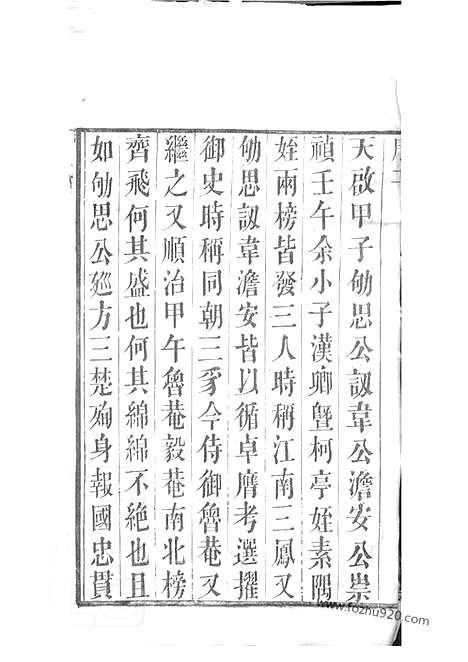 天啟甲子劬思公訒韋公澹安公祟
禎壬午余小子漢卿曁柯亭姪素隅
姪兩榜皆發三人時稱江南三鳳又
劬思訒韋澹安皆以循卓膺考選擢
御史時稱同朝三豸今侍御魯菴又
繼之又順治甲午魯菴毅菴南北榜
齊飛何其盛也何其綿綿不絶也且
如劬思公廵方三楚殉身報國忠貫
www.fozhu920.com